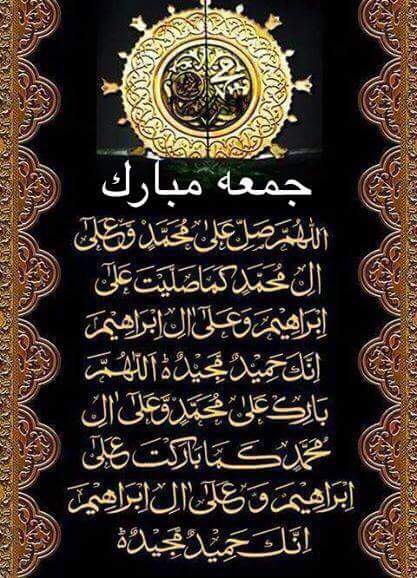 محمد
جمعه مبارك
اَللّٰهُمَّ صَلِّ عَلىٰ مُحَمَّدٍ وَّعَلىٰ
اٰلِ مُحَمَّدٍ كَمَا صَلَّيْتَ عَلىٰ
اِبْرَاهِيْمَ وَعَلىٰ اٰلِ اِبْرَاهِيْمَ
اِنَّكَ حَمِيْدٌ مَّجِيْدٌ ۃ اَللّٰهُمَّ
بَارِكْ عَلىٰ مُحَمَّدٍ وَّعَلىٰ اٰلِ
مُحَمَّدٍ كَمَا بَارَكْتَ عَلىٰ
اِبْرَاهِيْمَ وَعَلىٰ اٰلِ اِبْرَاهِيْمَ
اِنَّكَ حَمِيْدٌ مَّجِيْدٌ ۃ